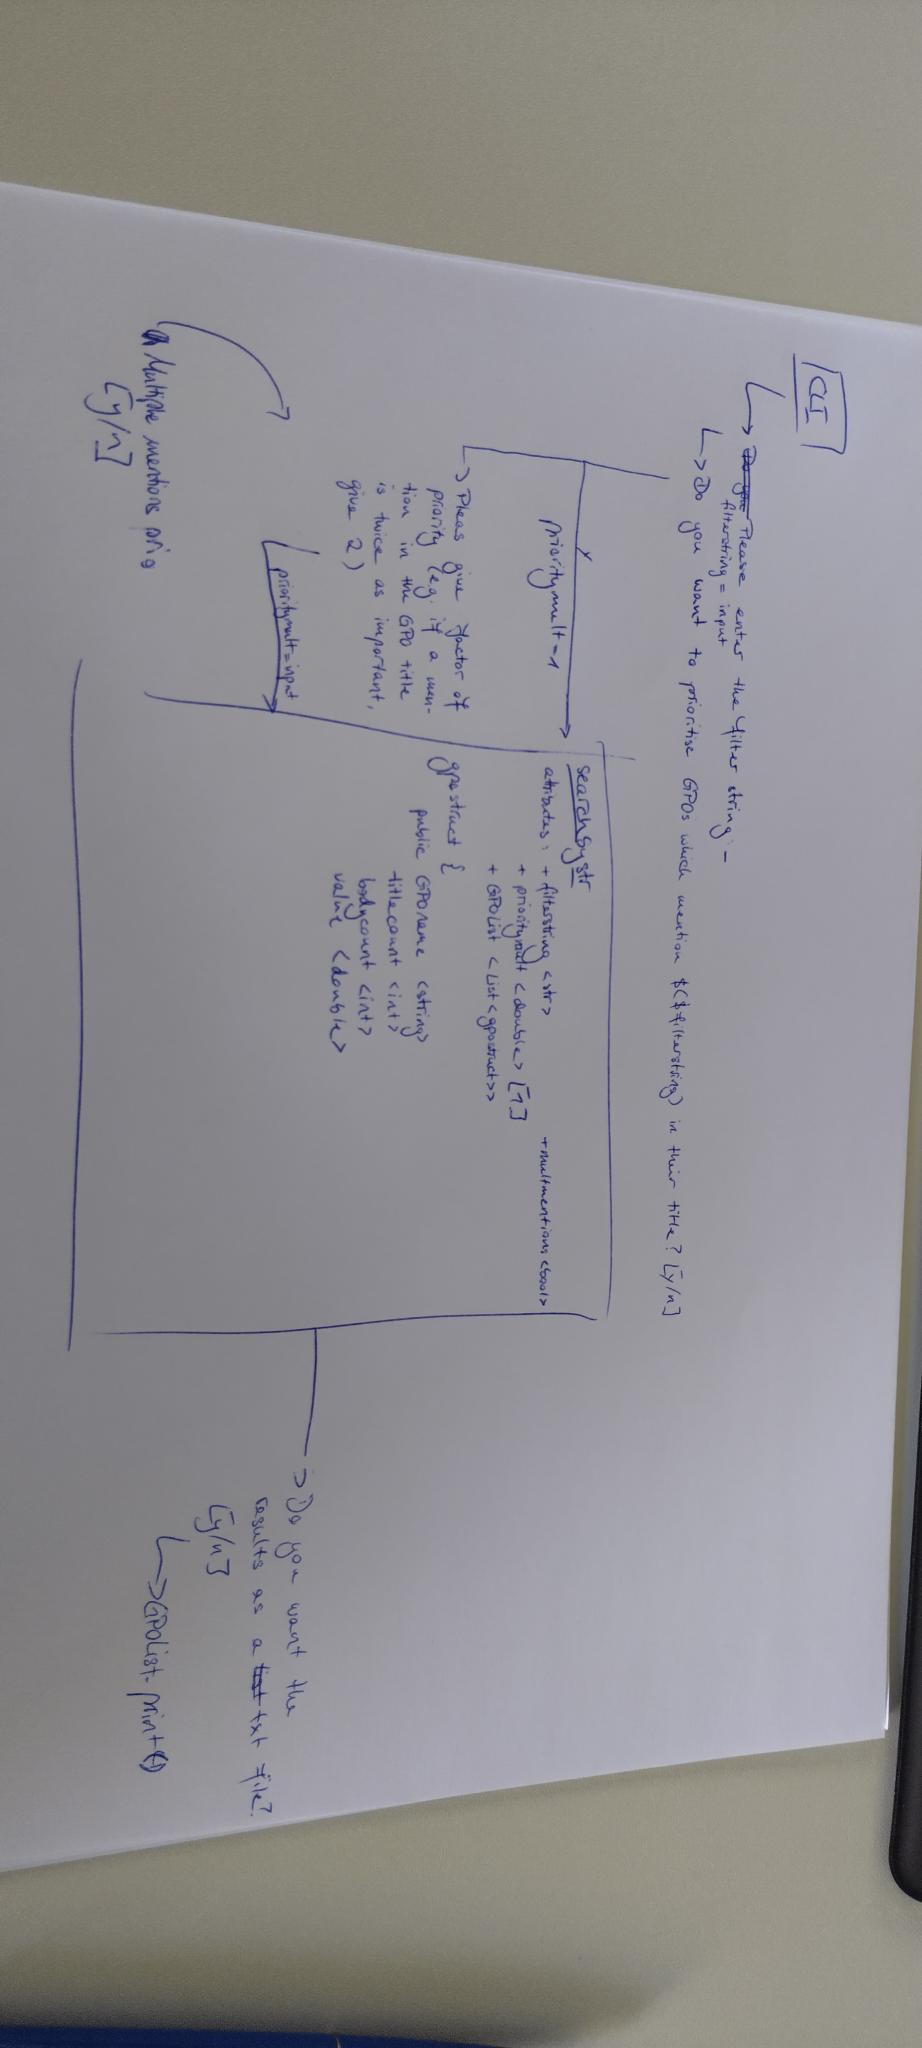 CLI
Please enter the filter string: _
filterstring = input
Do you want to prioritise GPOs which mention $($filterstring) in their title? [y/n]
prioritymult = 1
Pleas give factor of
priority (e.g. if a men-
tion in the GPO title
is twice as important,
give 2)
prioritymult = input
Multiple mentions prio
[y/n]
searchsystr
attributes: + filterstring <str>
+ multmentions <bool>
+ prioritymult <double> [1]
+ GPOList <List<gpostruct>>
gpostruct {
public GPOname <string>
titlecount <int>
bodycount <int>
value <double>
Do you want the
results as a txt file?
[y/n]
GPOList.print()